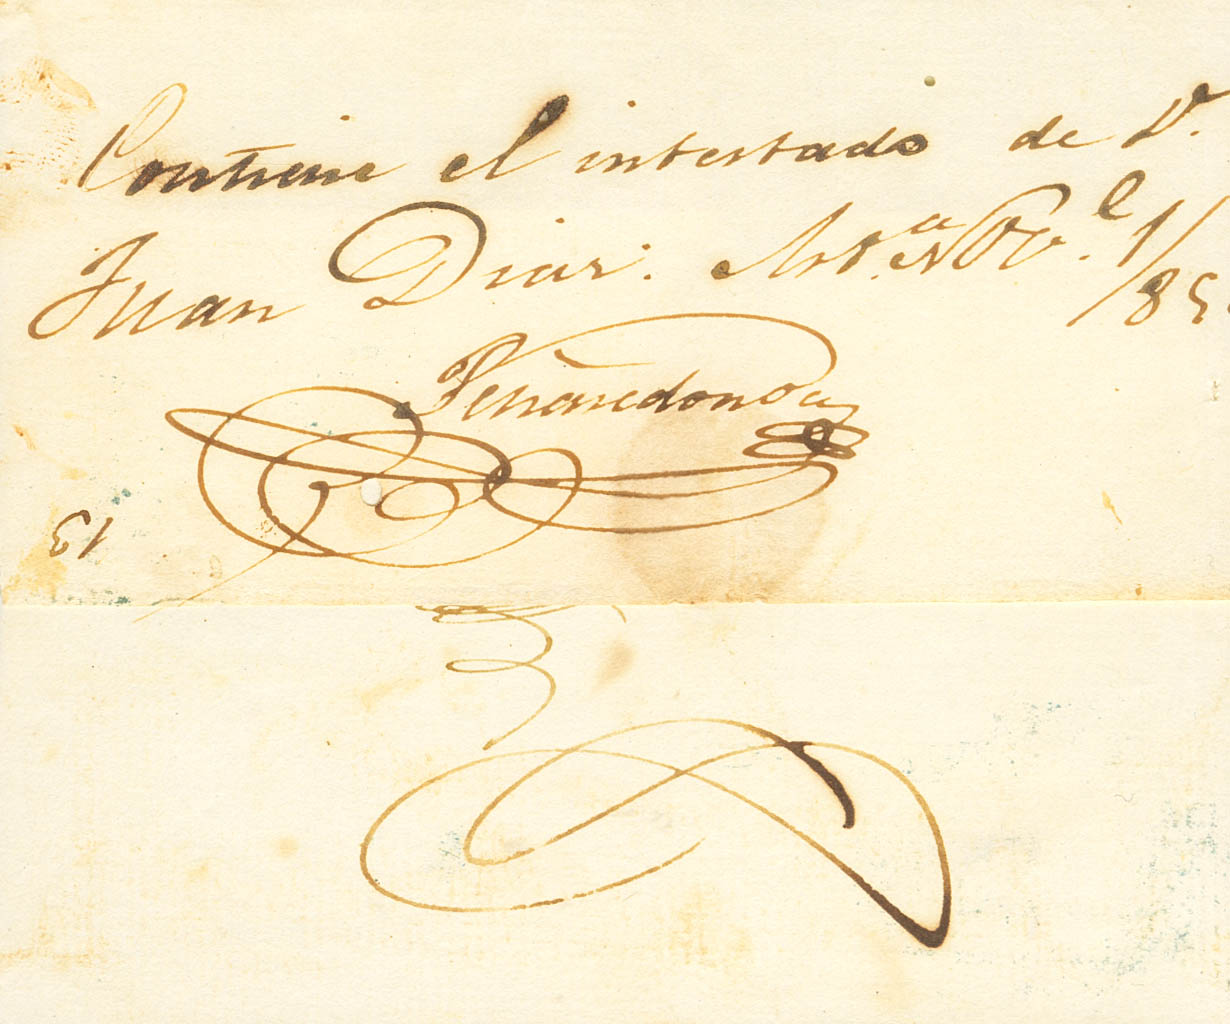 Contiene el intestado de D.ⁿ
Juan Diaz.
185
Peñaredonda
13